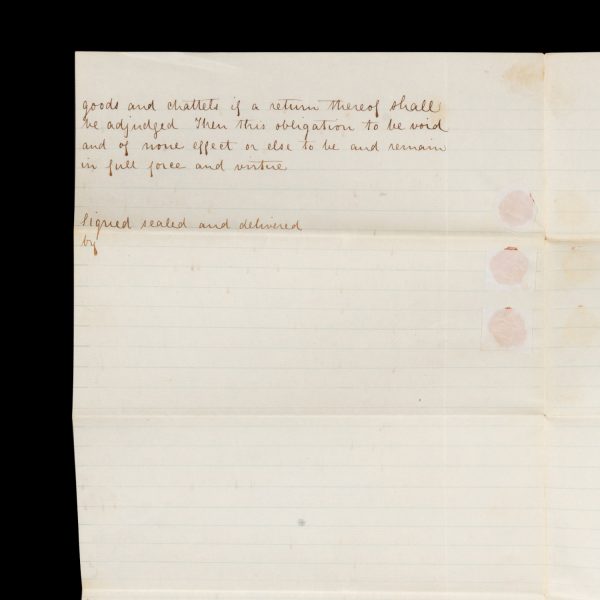 goods and chattels if a return thereof shall
be adjudged Then this obligation to be void
and of none effect or else to be and remain
in full force and virtue
Signed sealed and delivered
by